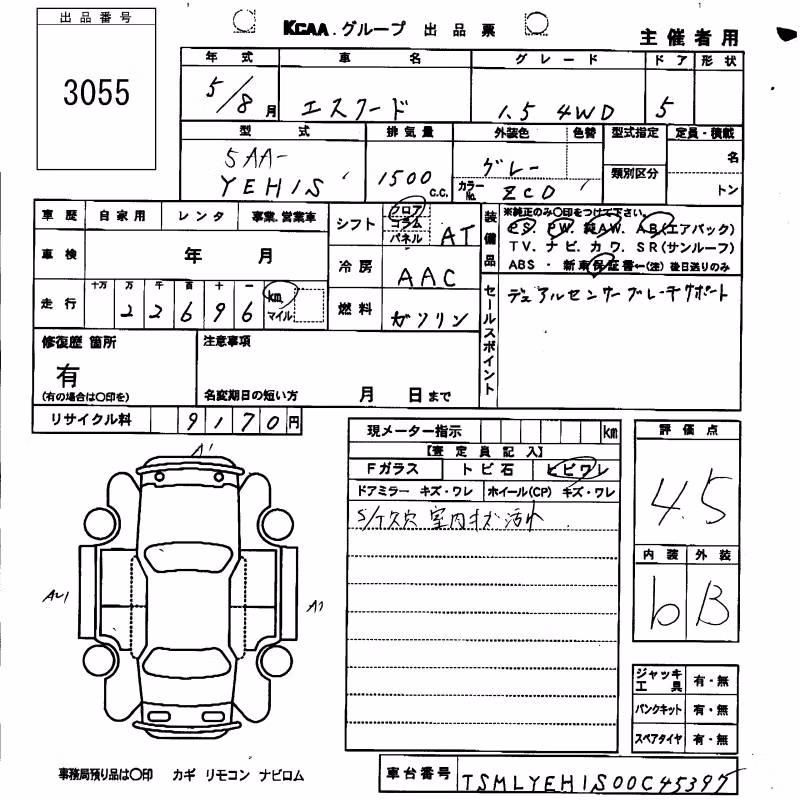 出品番号
3055
KCAA.グループ 出品票
主催者用
年式 車名 グレード ドア 形状
5/8月 エスクード 1.5 4WD 5
型式 排気量 外装色 色替 型式指定 定員・積載
5AA-
YEH1S 1500 c.c. グレー カラーNo. ZCD 類別区分 名
トン
車歴 自家用 レンタ 事業.営業車
シフト フロア コラム パネル AT
装備品 ※純正のみ〇印をつけて下さい。
PS. PW. 純AW. AB(エアバック)
TV. ナビ. カワ. SR(サンルーフ)
ABS・新車保証書←(注)後日送りのみ
車検 年 月
冷房 AAC
走行 十万 万 千 百 十 一
22696 km マイル
燃料 ガソリン
セールスポイント
デュアルセンサーブレーキサポート
修復歴 箇所
有
(有の場合は〇印を)
注意事項
名変期日の短い方 月 日まで
リサイクル料 9170円
現メーター指示 km
【査定員記入】
Fガラス トビ石 ヒビワレ
ドアミラー キズ・ワレ ホイール(CP) キズ・ワレ
室内キズ汚れ
評価点
4.5
内装 外装
b B
A1
A1
ジャッキ工具 有・無
パンクキット 有・無
スペアタイヤ 有・無
事務局預り品は〇印 カギ リモコン ナビロム
車台番号 TSMLYEH1S00C45397